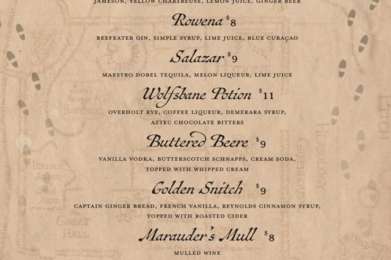 JAMESON, YELLOW CHARTREUSE, LEMON JUICE, GINGER BEER
Rowena $8
BEEFEATER GIN, SIMPLE SYRUP, LIME JUICE, BLUE CURAÇAO
Salazar $9
MAESTRO DOBEL TEQUILA, MELON LIQUEUR, LIME JUICE
Wolfsbane Potion $11
OVERHOLT RYE, COFFEE LIQUEUR, DEMERARA SYRUP,
AZTEC CHOCOLATE BITTERS
Buttered Beere $9
VANILLA VODKA, BUTTERSCOTCH SCHNAPPS, CREAM SODA,
TOPPED WITH WHIPPED CREAM
Golden Snitch $9
CAPTAIN GINGER BREAD, FRENCH VANILLA, REYNOLDS CINNAMON SYRUP,
TOPPED WITH ROASTED CIDER
Marauder's Mull $8
MULLED WINE